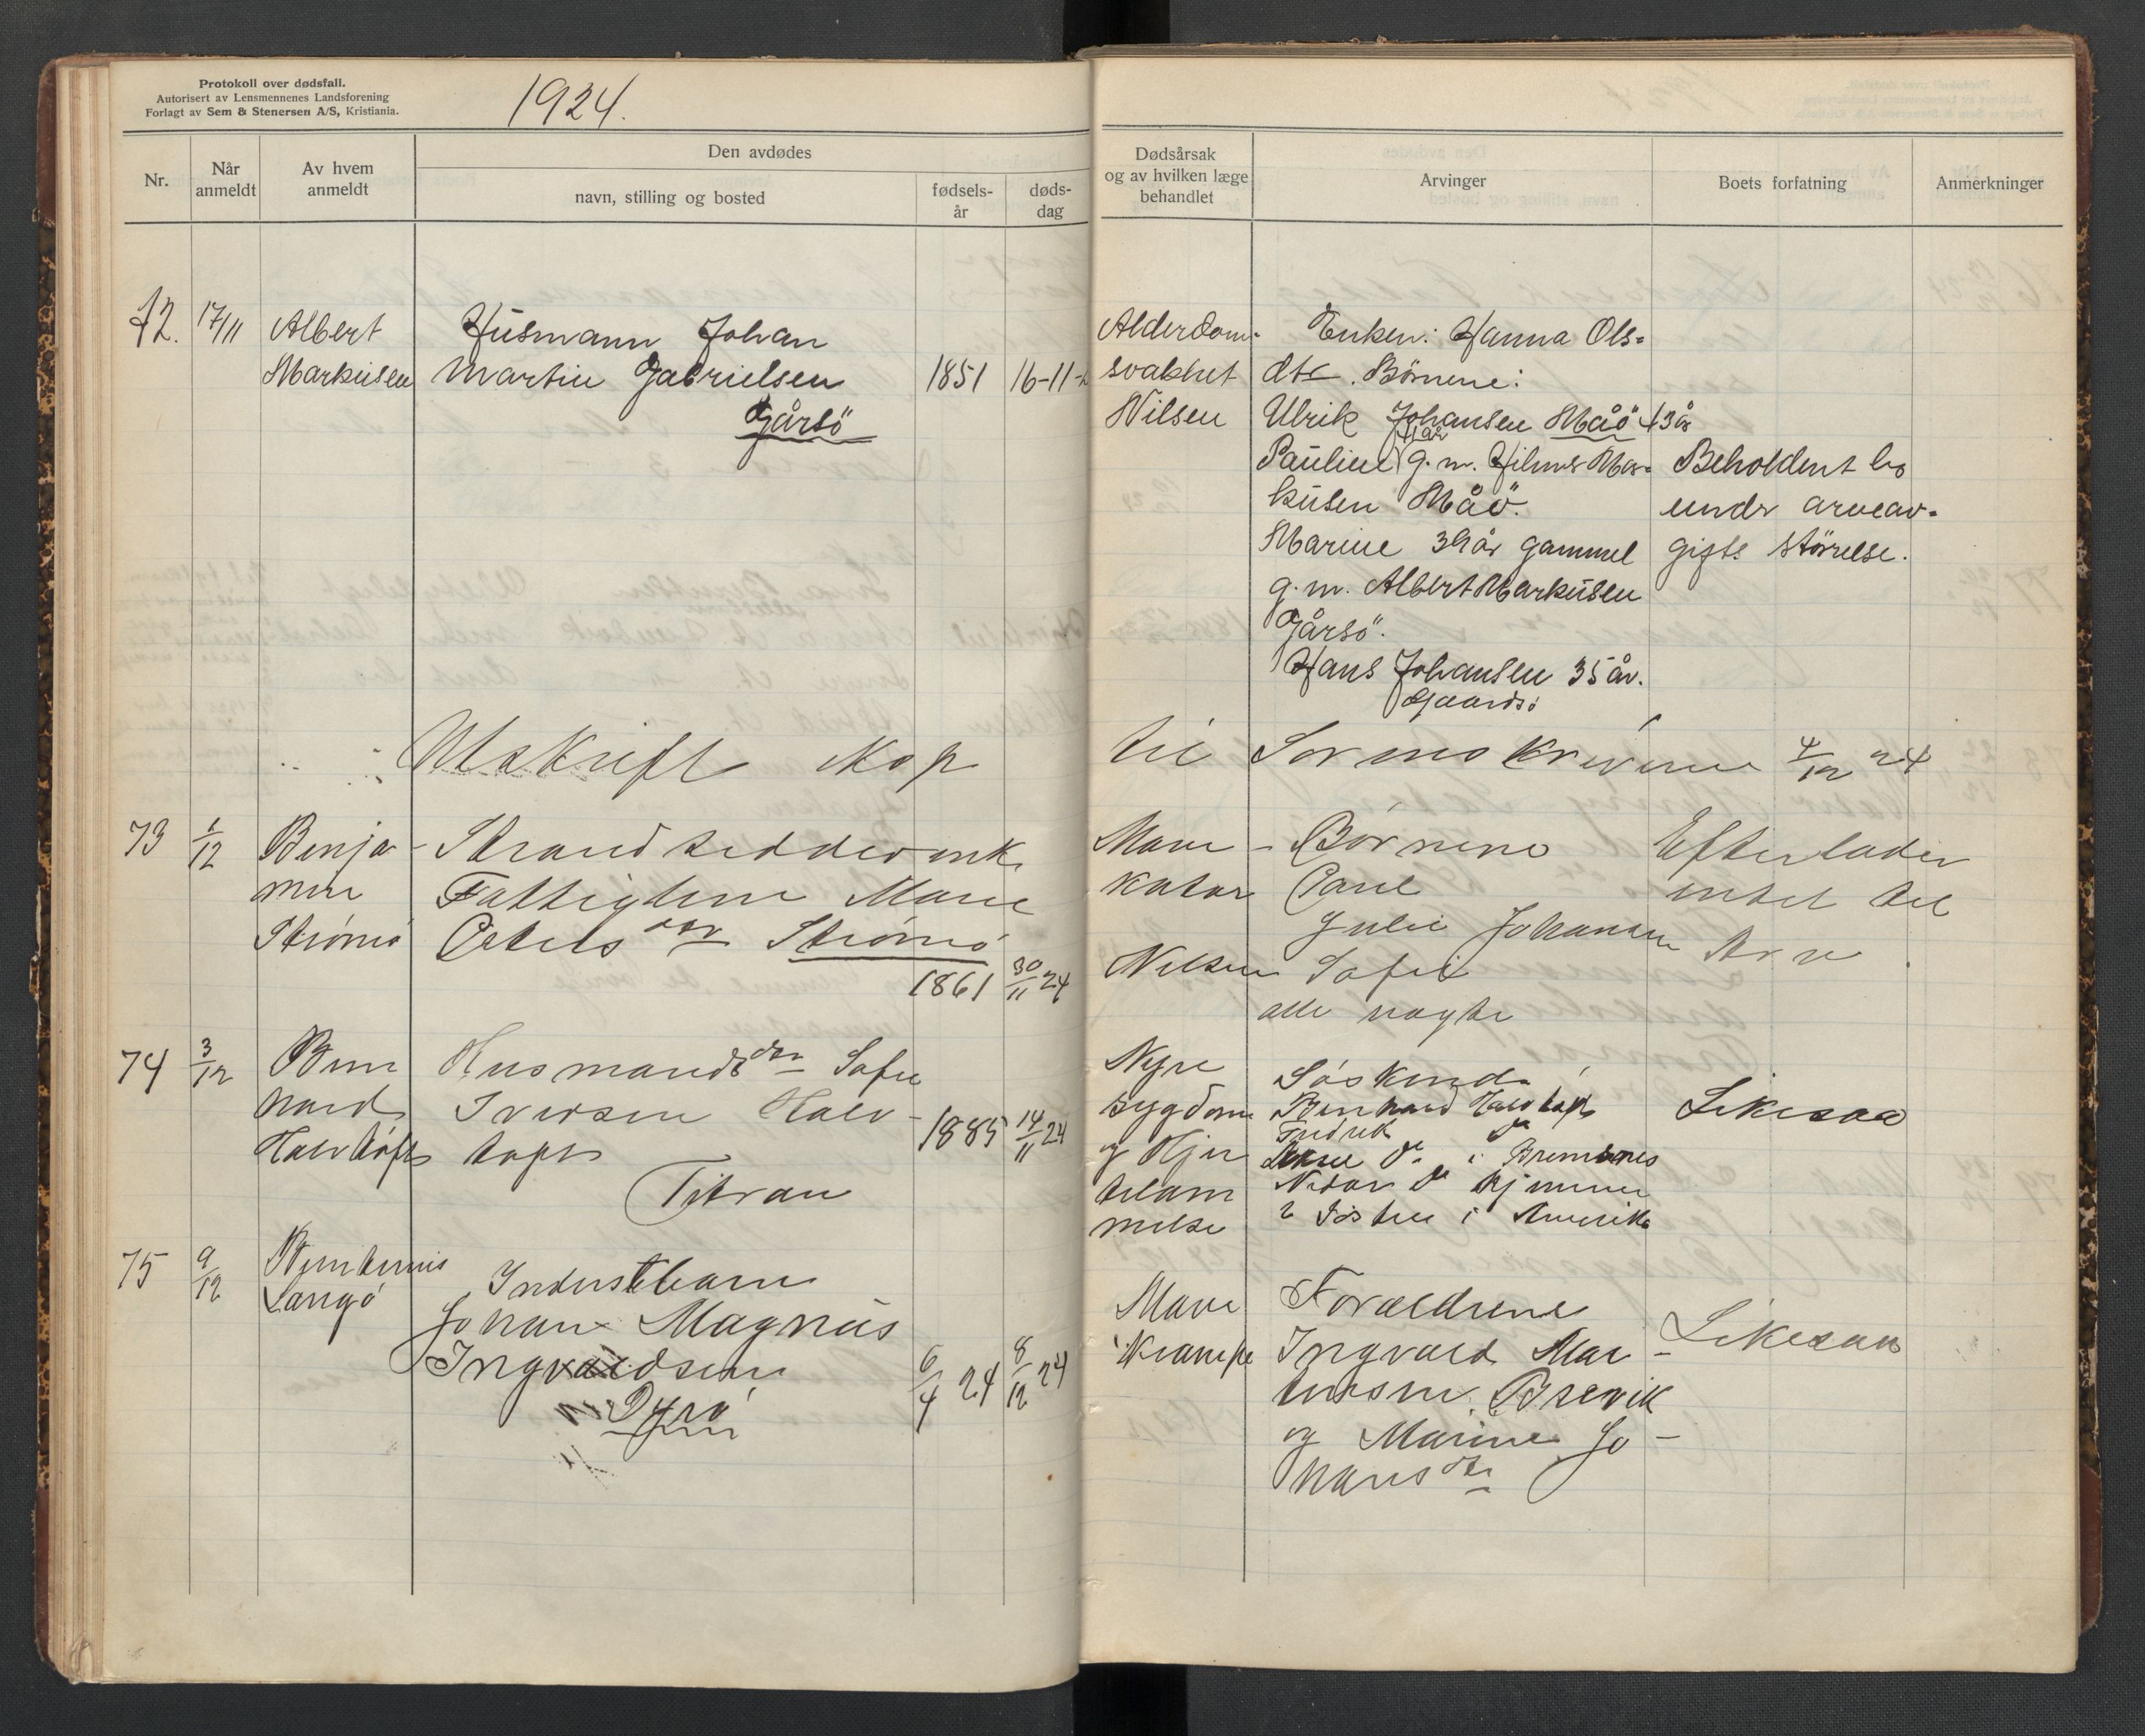 Protokoll over dødsfall.
Autorisert av Lensmennenes Landsforening
Forlagt av Sem & Stenersen A/S, Kristiania.
1924.
Nr.
Når anmeldt
Av hvem anmeldt
Den avdødes
navn, stilling og bosted
fødsels-år
døds-dag
Dødsårsak og av hvilken læge behandlet
Arvinger
Boets forfatning
Anmerkninger
72. 17/11
Albert
Markusen
Husmann Johan
Martin Gabrielsen
Gårsö
1851 16-11-
Alderdom-
svakhet
Nilsen
Enken: Hanna Ols-
dtr. Börnene:
Ulrik Johansen Måö 43 år
41 år
Pauline g. m. Hilmer Mar-
kusen Måö.
Marine 39 år gammel
g. m. Albert Markusen
Gårsö.
Hans Johansen 35 år.
Gaardsö
Beholdent bo
under arveav-
gifts störrelse.
Utskrift
til Sorenskriveren 4/12 24
73 1/12
Benja-
min
Strömö
Strandsidderenke
Marie
Strömö
1861 30/11 24
Mave-
katar
Nilsen
Börnene
Paul
Julie Johansen
Sofie
alle
Efterlader
intet til
Arv.
74 3/12
Bern
hard
Husmandsdtr Sofie
Iversen
Titran
1885 14/11 24
Nyre
sygdom
og Hjer
telam
melse
Söskend
Bernhard
Fredrik do
do i Bremsnes
do hjemme
2 Söstre i Amerika
Likesaa
75 9/12
Langö
Inderstbarn
Johan Magnus
Ingvaldsen
Dyrö
6/4 24 8/12 24
Mave
Krampe
Forældrene
Ingvald Mar-
tinsen Brevik
og Marine Jo-
hansdtr
Likesaa